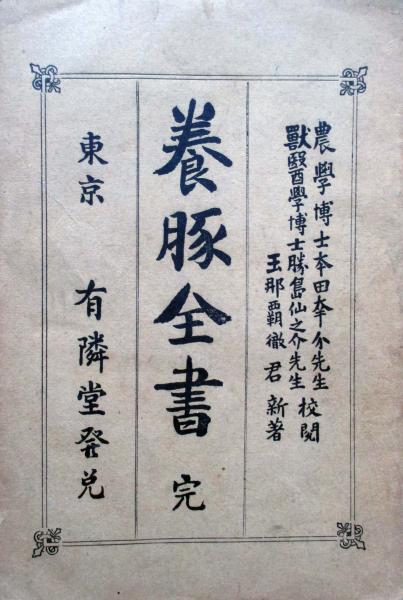 農學博士本田幸介先生
獸醫學博士勝島仙之介先生 校閲
玉那覇徹君 新著
養豚全書 完
東京 有隣堂發兌